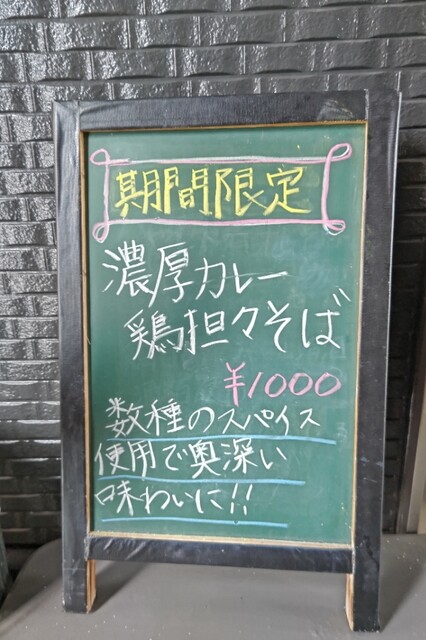 期間限定
濃厚カレー
鶏担々そば
¥1000
数種のスパイス
使用で奥深い
味わいに!!